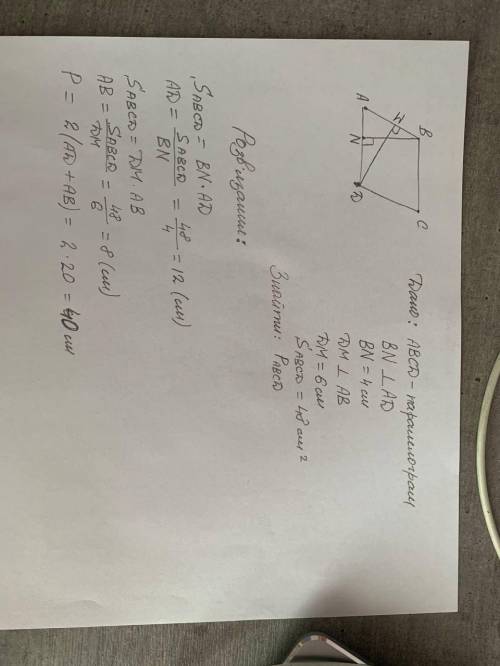 B
C
M
A
N
D
Дано: ABCD - паралелограм
BN ⊥ AD
BN = 4 см
DM ⊥ AB
DM = 6 см
S ABCD = 48 см²
Знайти: P ABCD
Розв'язання:
S ABCD = BN · AD
AD = S ABCD / BN = 48 / 4 = 12 (см)
S ABCD = DM · AB
AB = S ABCD / DM = 48 / 6 = 8 (см)
P = 2(AD + AB) = 2 · 20 = 40 см